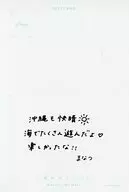 沖縄も快晴☀
海でたくさん遊んだよ♡
楽しかったな!!
まなつ